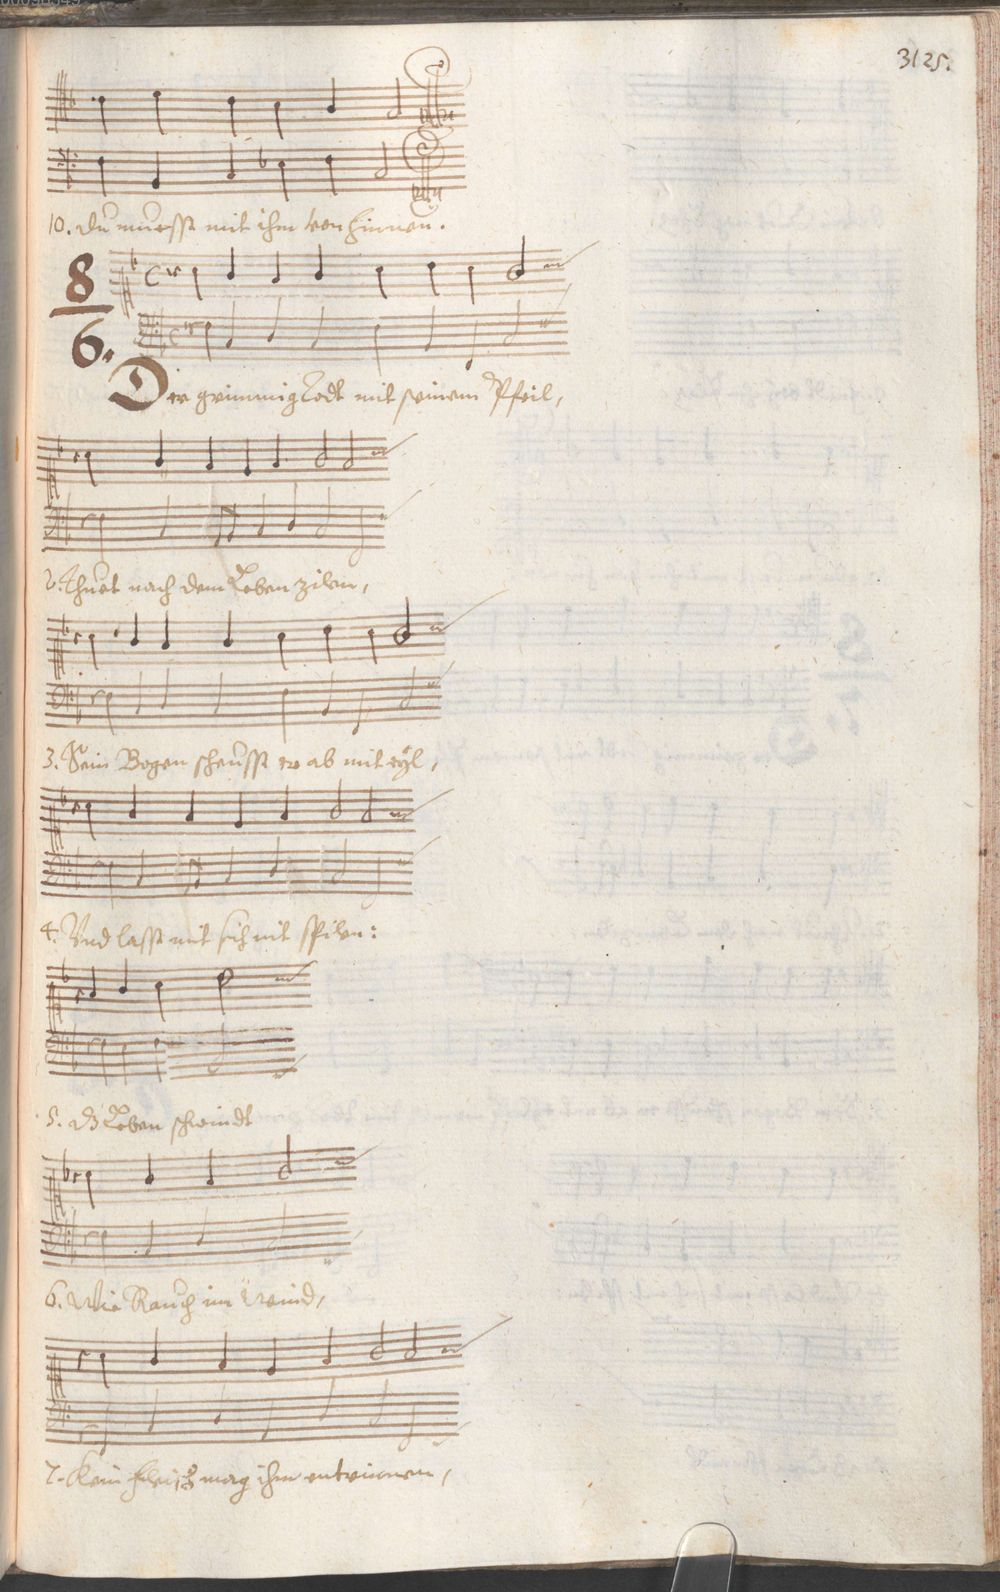 3125.
10. Du muesst mit ihm von hinnen.
8
6.
Der grimmig Todt mit seinem Pfeil,
2. Thuet nach dem Leben zilen,
3. Sein Bogen scheusst er ab mit eyl,
4. Und lasst mit sich nit spilen:
5. Leben schwindt
6. Wie Rauch im Wind,
7. Kein mag ihm entrinnen,